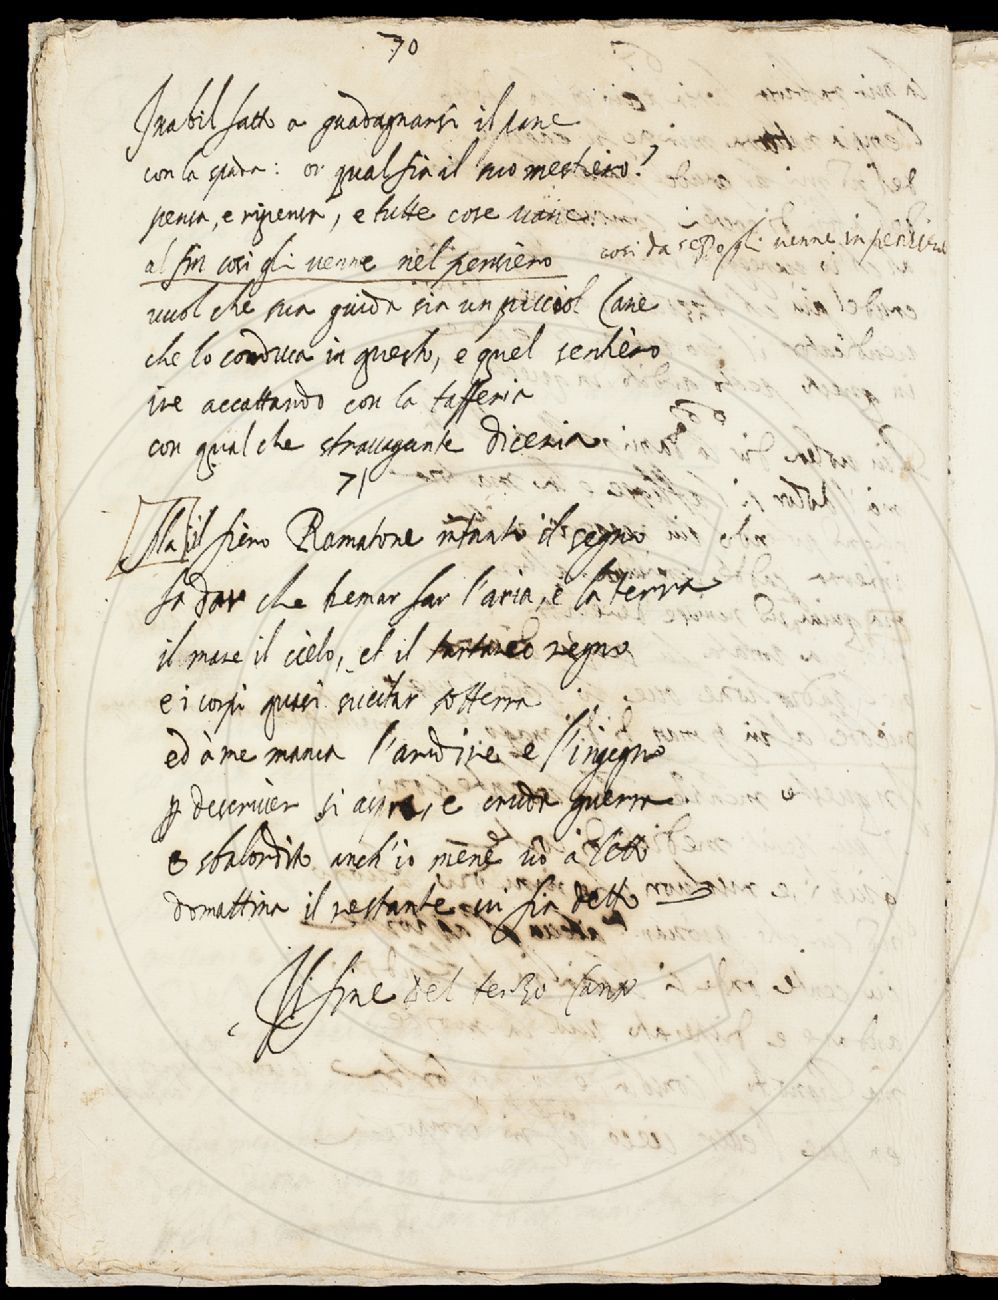 70
Inabil fatto a guadagnarsi il pane
con la spada: or qual fia il suo mestiero?
pensa, e ripensa, e tutte cose vane
al fin così gli venne nel pensiero
così da sezzo gli venne in pensiero
vuol che sua guida sia un picciol Cane
che lo conduca in questo, e quel sentiero
ire accattando con la tafferia
con qualche stravagante diceria
71
Ma il fiero Ramatone intanto il segno
fa dar che tremar far l'aria, e la terra
il mare il cielo, et il tartareo regno
e i corpi quasi suscitar sotterra
ed à me manca l'ardire e l'ingegno
p descriver si aspra, e cruda guerra
e sbalordito anch'io mene vò à letto
domattina il restante vi fia detto
Il fine del terzo Canto